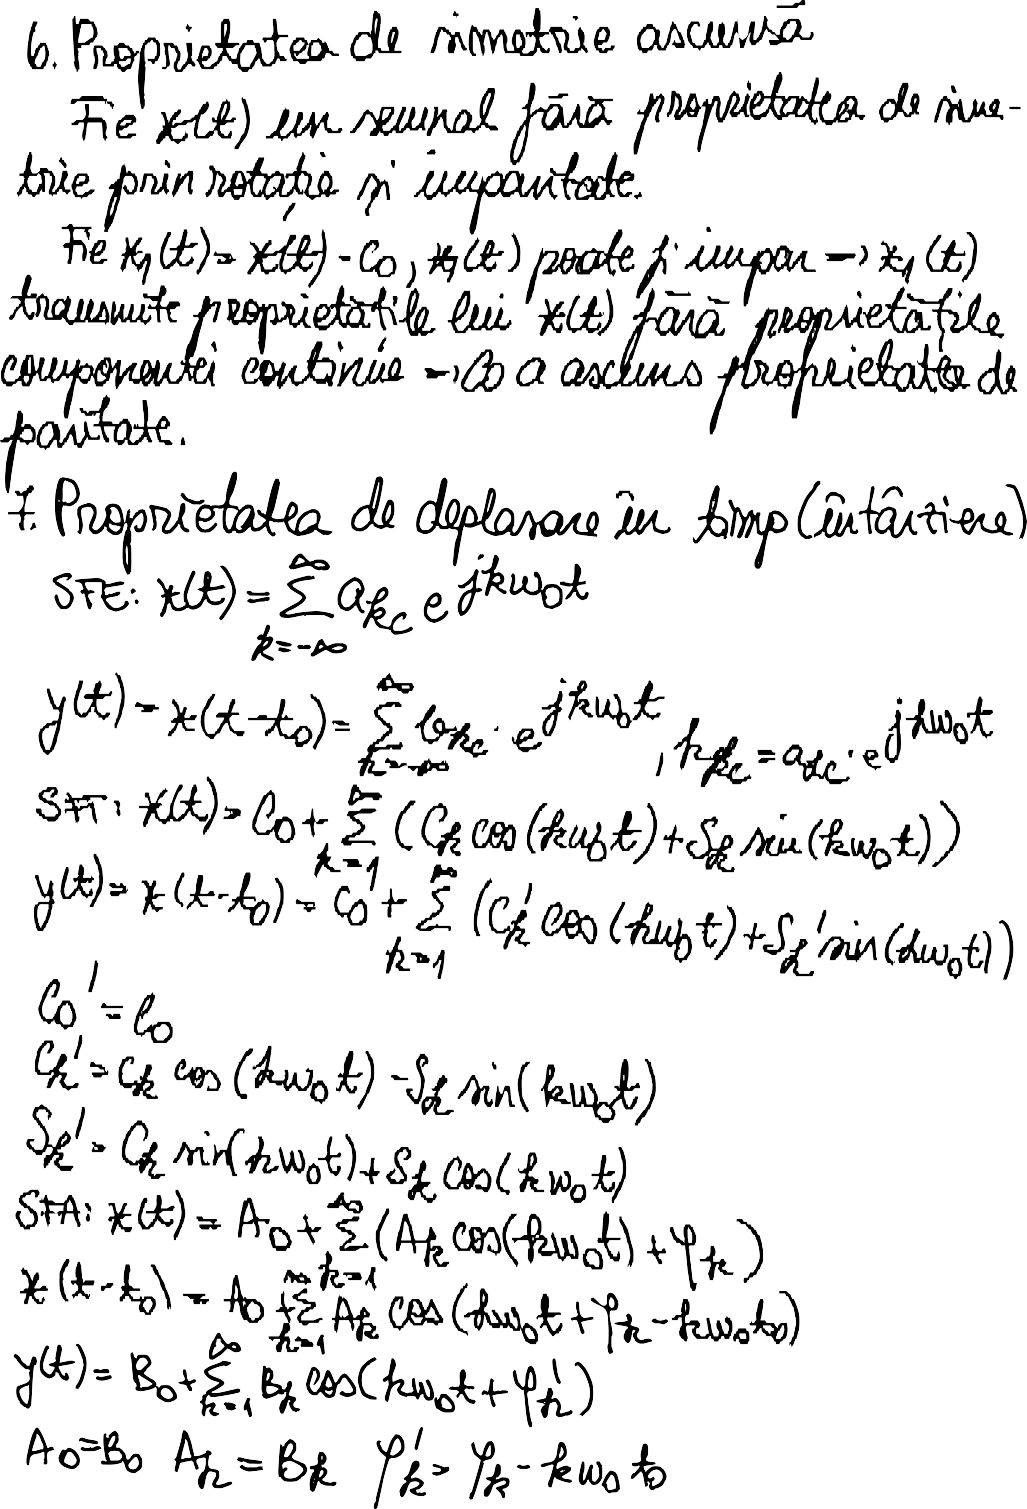 6. Proprietatea de simetrie ascunsă
Fie x(t) un semnal fără proprietatea de sime-
trie prin rotație și imparitate.
Fie x₁(t) = x(t) - C₀, x₁(t) poate fi impar → x₁(t)
transmite proprietățile lui x(t) fără proprietățile
componentei continue → C₀ a ascuns proprietatea de
paritate.
7. Proprietatea de deplasare în timp (întârziere)
SFE: x(t) = ∑_{k=-∞}^{∞} a_{kc} e^{jkω₀t}
y(t) = x(t-t₀) = ∑_{k=-∞}^{∞} b_{kc} · e^{jkω₀t}, b_{kc} = a_{kc} · e^{jkω₀t}
SFT: x(t) = C₀ + ∑_{k=1}^{∞} (C_k cos(kω₀t) + S_k sin(kω₀t))
y(t) = x(t-t₀) = C₀ + ∑_{k=1}^{∞} (C_k' cos(kω₀t) + S_k' sin(kω₀t))
C₀' = C₀
C_k' = C_k cos(kω₀t) - S_k sin(kω₀t)
S_k' = C_k sin(kω₀t) + S_k cos(kω₀t)
SFA: x(t) = A₀ + ∑_{k=1}^{∞} (A_k cos(kω₀t) + φ_k)
x(t-t₀) = A₀ + ∑_{k=1}^{∞} A_k cos(kω₀t + φ_k - kω₀t₀)
y(t) = B₀ + ∑_{k=1}^{∞} B_k cos(kω₀t + φ_k')
A₀ = B₀ A_k = B_k φ_k' = φ_k - kω₀t₀